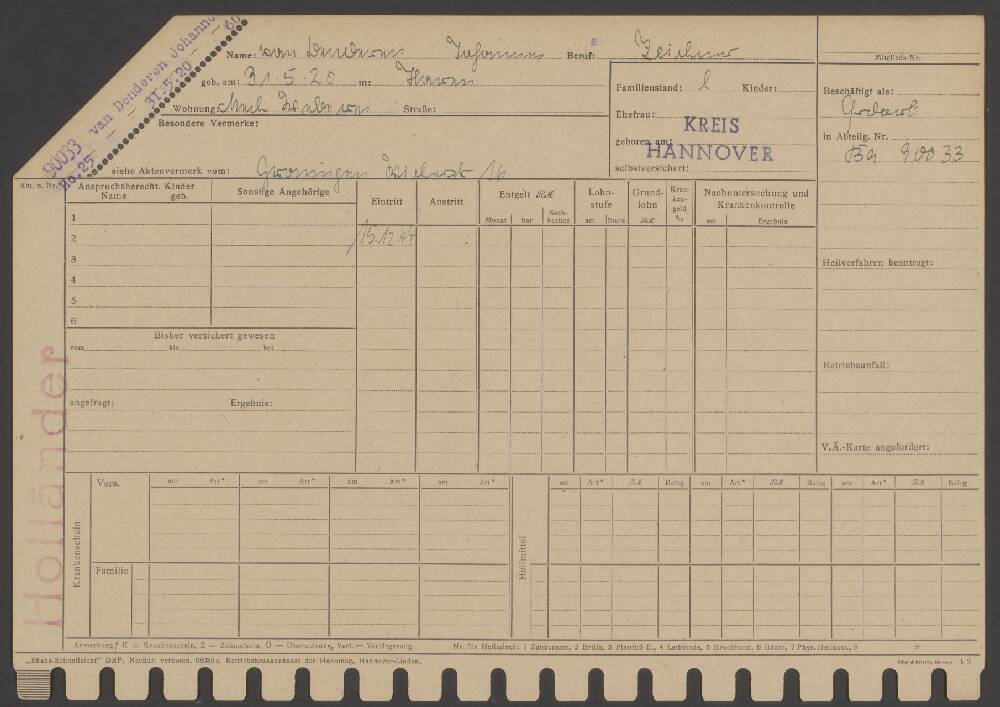 90033 van Donderen Johann
No. 25 31.5.20 60
Name: van Donderen Johannes Beruf: Zeichner
geb. am: 31.5.20 in: Haren
Wohnung: Straße:
Besondere Vermerke:
siehe Aktenvermerk vom: Groningen 16
Familienstand: l Kinder:
Ehefrau:
geboren am:
KREIS
HANNOVER
selbstversichert:
Mitglieds-Nr.
Beschäftigt als:
in Abteilg. Nr.
Ba 90033
Heilverfahren beantragt:
Betriebsunfall:
V.Ä.-Karte angefordert:
Anspruchsberecht. Kinder
Name geb.
Sonstige Angehörige
Eintritt
Austritt
Entgelt RM
Monat bar Sach-
bezüge
Lohn-
stufe
am Stufe
Grund-
lohn
RM
Kran-
ken-
geld
%
Nachuntersuchung und
Krankenkontrolle
am Ergebnis
1
2 13.12.44
3
4
5
6
Bisher versichert gewesen
vom bis bei
angefragt: Ergebnis:
Holländer
Krankenschein
Vers. am Art* am Art* am Art* am Art*
Familie
Heilmittel
am Art* RM Beleg am Art* RM Beleg am Art* RM Beleg
Anmerkung: * K = Krankenschein, Z = Zahnschein, O = Überweisung, Verl. = Verlängerung
Nr. für Heilmittel: 1 Zahnersatz, 2 Brille, 3 Plattfuß-E., 4 Leibbinde, 5 Bruchband, 6 Bäder, 7 Phys. Heilanst., 8 9
Betriebskrankenkasse der Hanomag, Hannover-Linden.